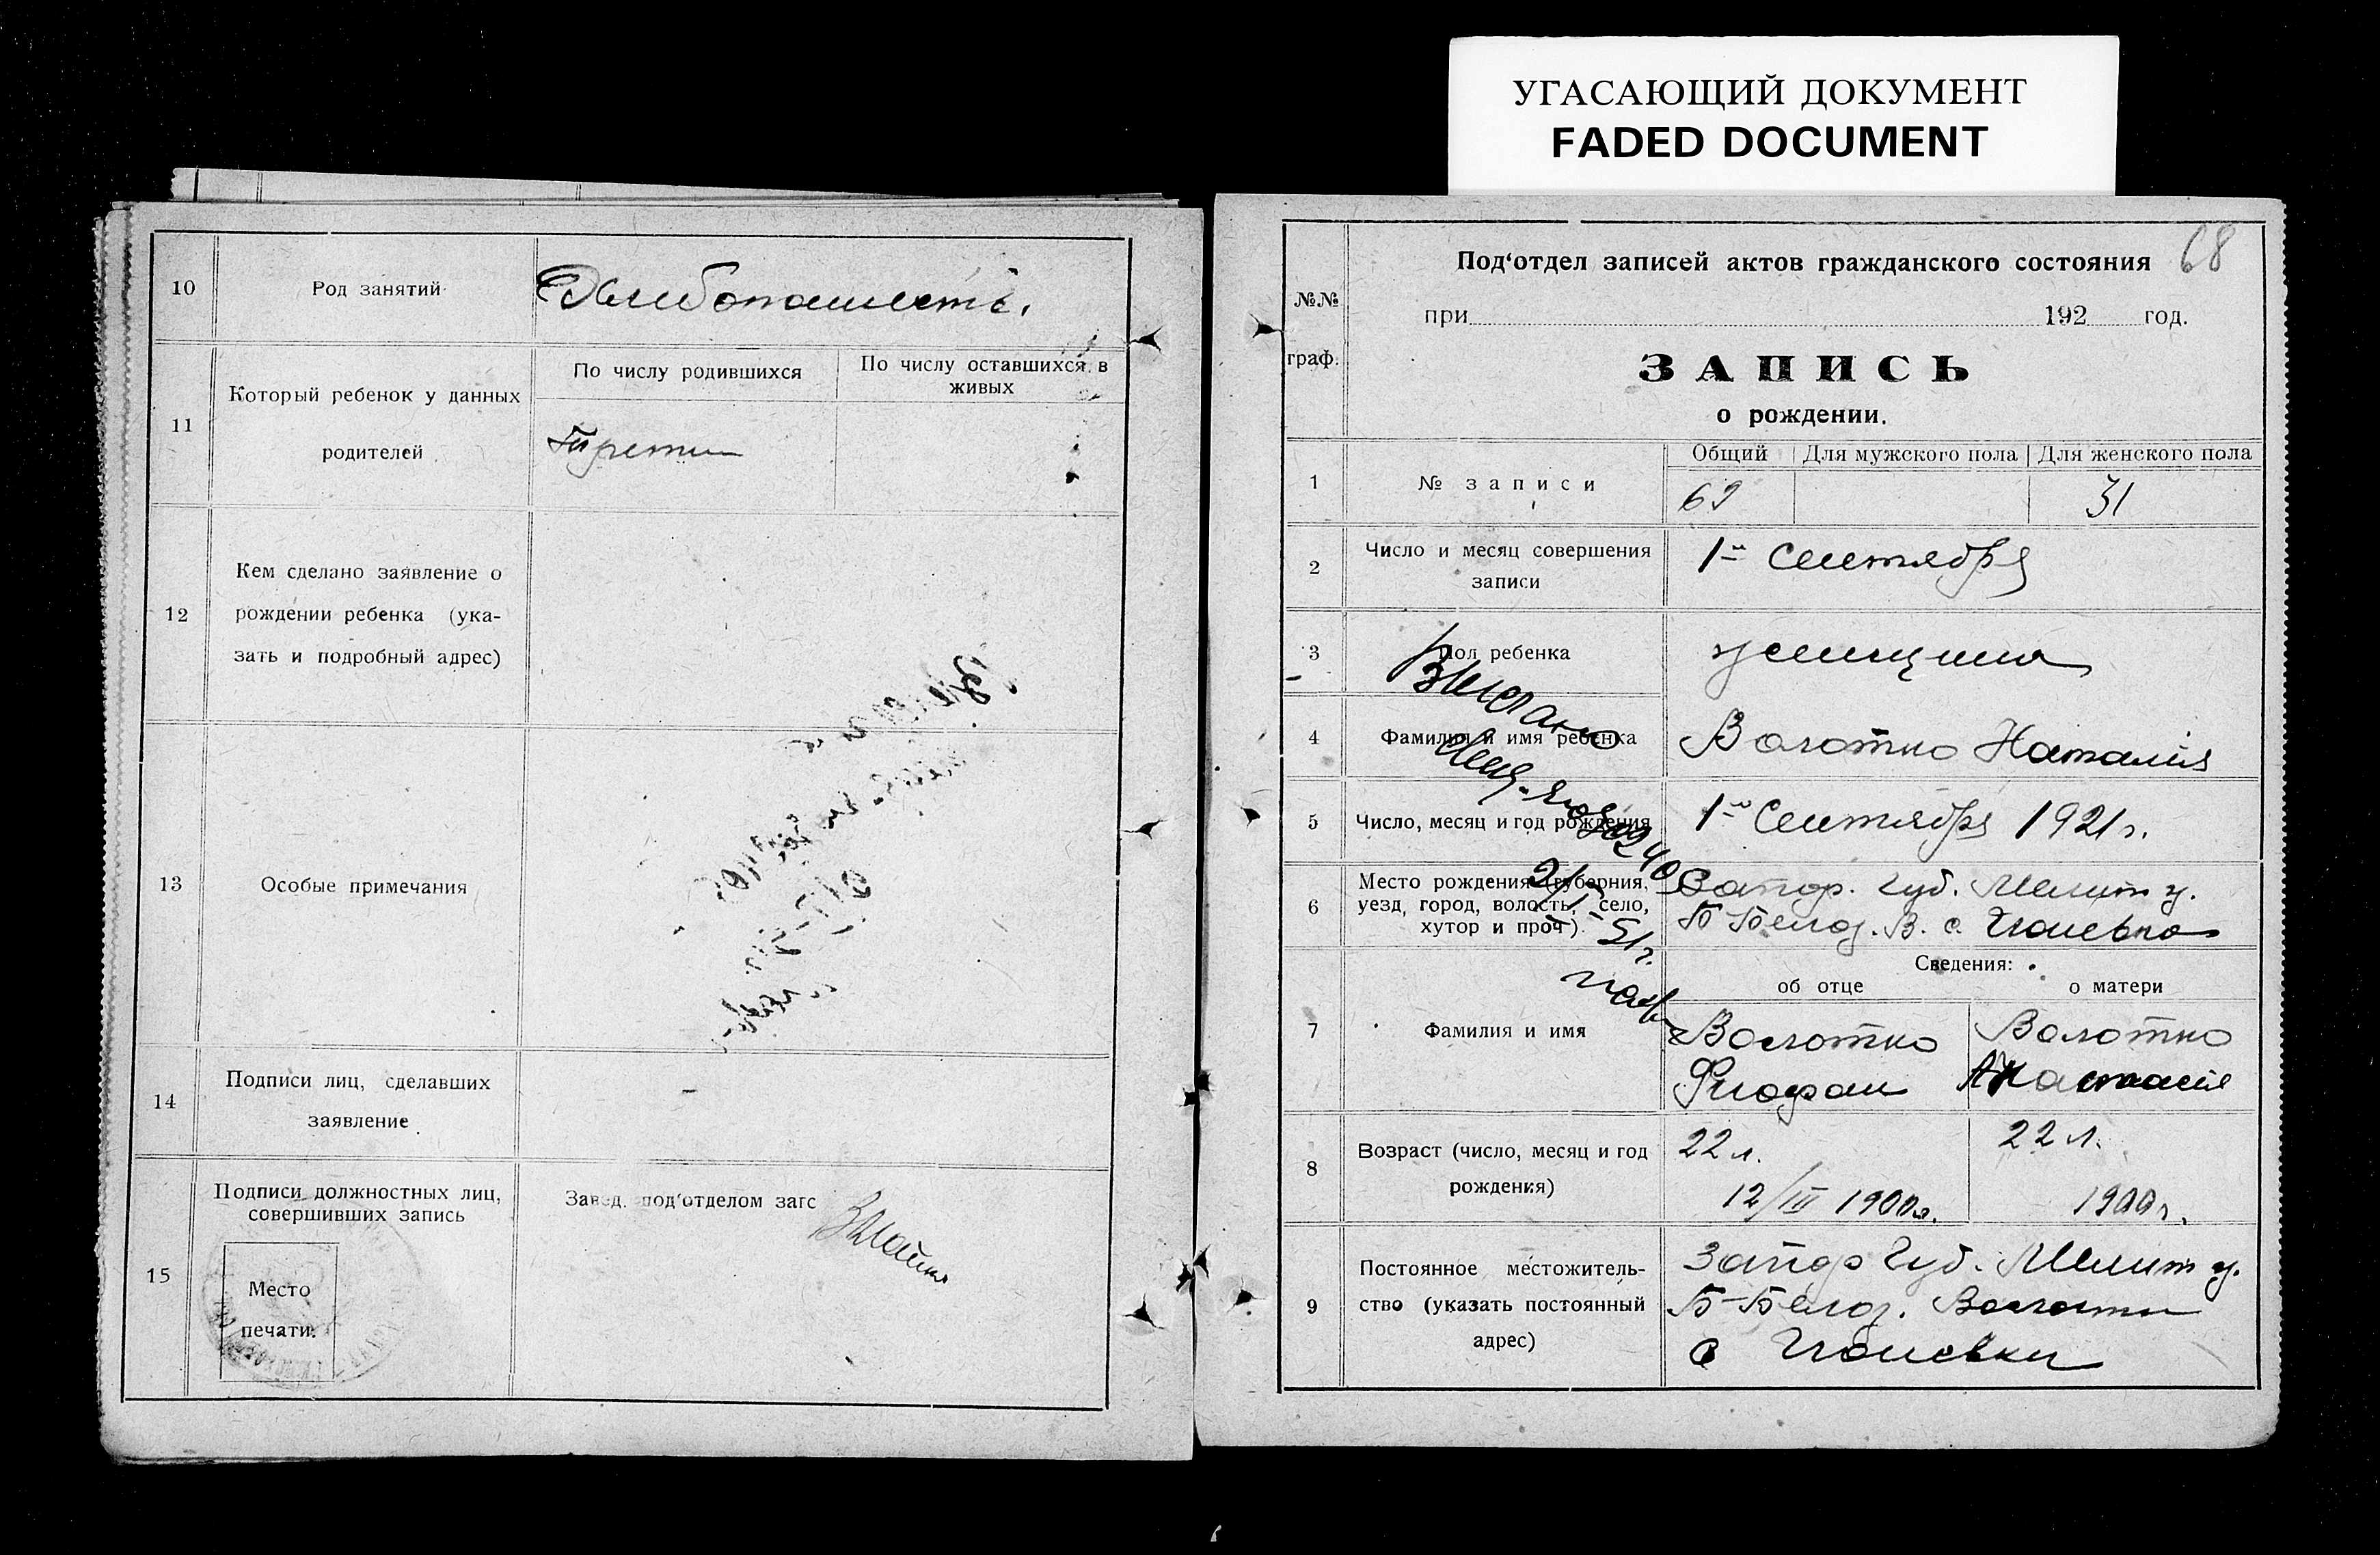 УГАСАЮЩИЙ ДОКУМЕНТ
FADED DOCUMENT
10
Род занятий
Хлибопашестъ.
11
Который ребенок у данных
родителей
По числу родившихся
По числу оставшихся в
живых
Трети
12
Кем сделано заявление о
рождении ребенка (ука-
зать и подробный адрес)
13
Особые примечания
14
Подписи лиц, сделавших
заявление
15
Подписи должностных лиц,
совершивших запись
Место
печати.
Завед. под'отделом загс
68
№№
граф.
Под'отдел записей актов гражданского состояния
при 192 год.
ЗАПИСЬ
о рождении.
1
№ записи
Общий
Для мужского пола
Для женского пола
69
31
2
Число и месяц совершения
записи
1го Сентября
3
Пол ребенка
женщина
4
Фамилия и имя ребенка
Волотко Наталія
5
Число, месяц и год рождения
1го Сентября 1921 г.
6
Место рождения (губерния,
уезд, город, волость, село,
хутор и проч.)
Запор. Губ. Мелит у.
Б-Белоз. В. с.
Сведения:
об отце
о матери
7
Фамилия и имя
Волотко
Феофан
Волотко
8
Возраст (число, месяц и год
рождения)
22 л.
12/III 1900 г.
22 л.
1900 г.
9
Постоянное местожитель-
ство (указать постоянный
адрес)
Запор Губ. Мелит у.
Б-Белоз. Волости
с
Выдано
2/I-51 г.